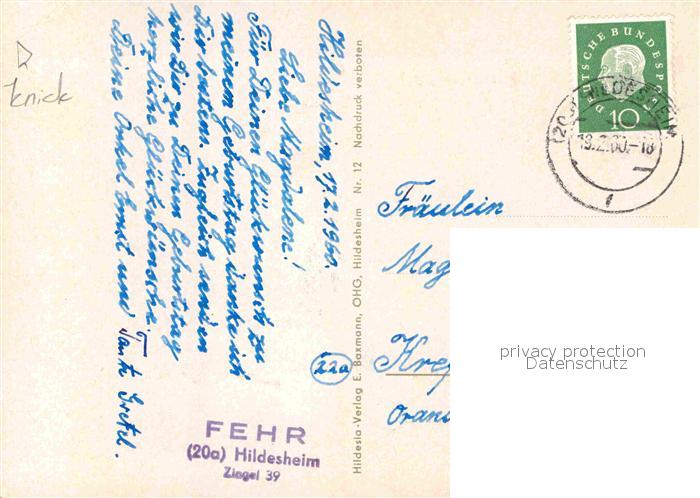 knick
Hildesheim, 17.2.1960.
Liebe Magdalene!
Für Deinen Glückwunsch zu
meinem Geburtstag danke ich
Dir bestens. Zugleich senden
wir Dir zu Deinem Geburtstag
herzliche Glückwünsche.
Deine Onkel Ernst und Tante Gretel.
FEHR
(20a) Hildesheim
Zingel 39
Hildesia-Verlag E. Baxmann, OHG, Hildesheim Nr. 12 Nachdruck verboten
DEUTSCHE BUNDESPOST
10
HILDESHEIM
-18
Fräulein
Mag
22a
Kref
Oran
privacy protection
Datenschutz